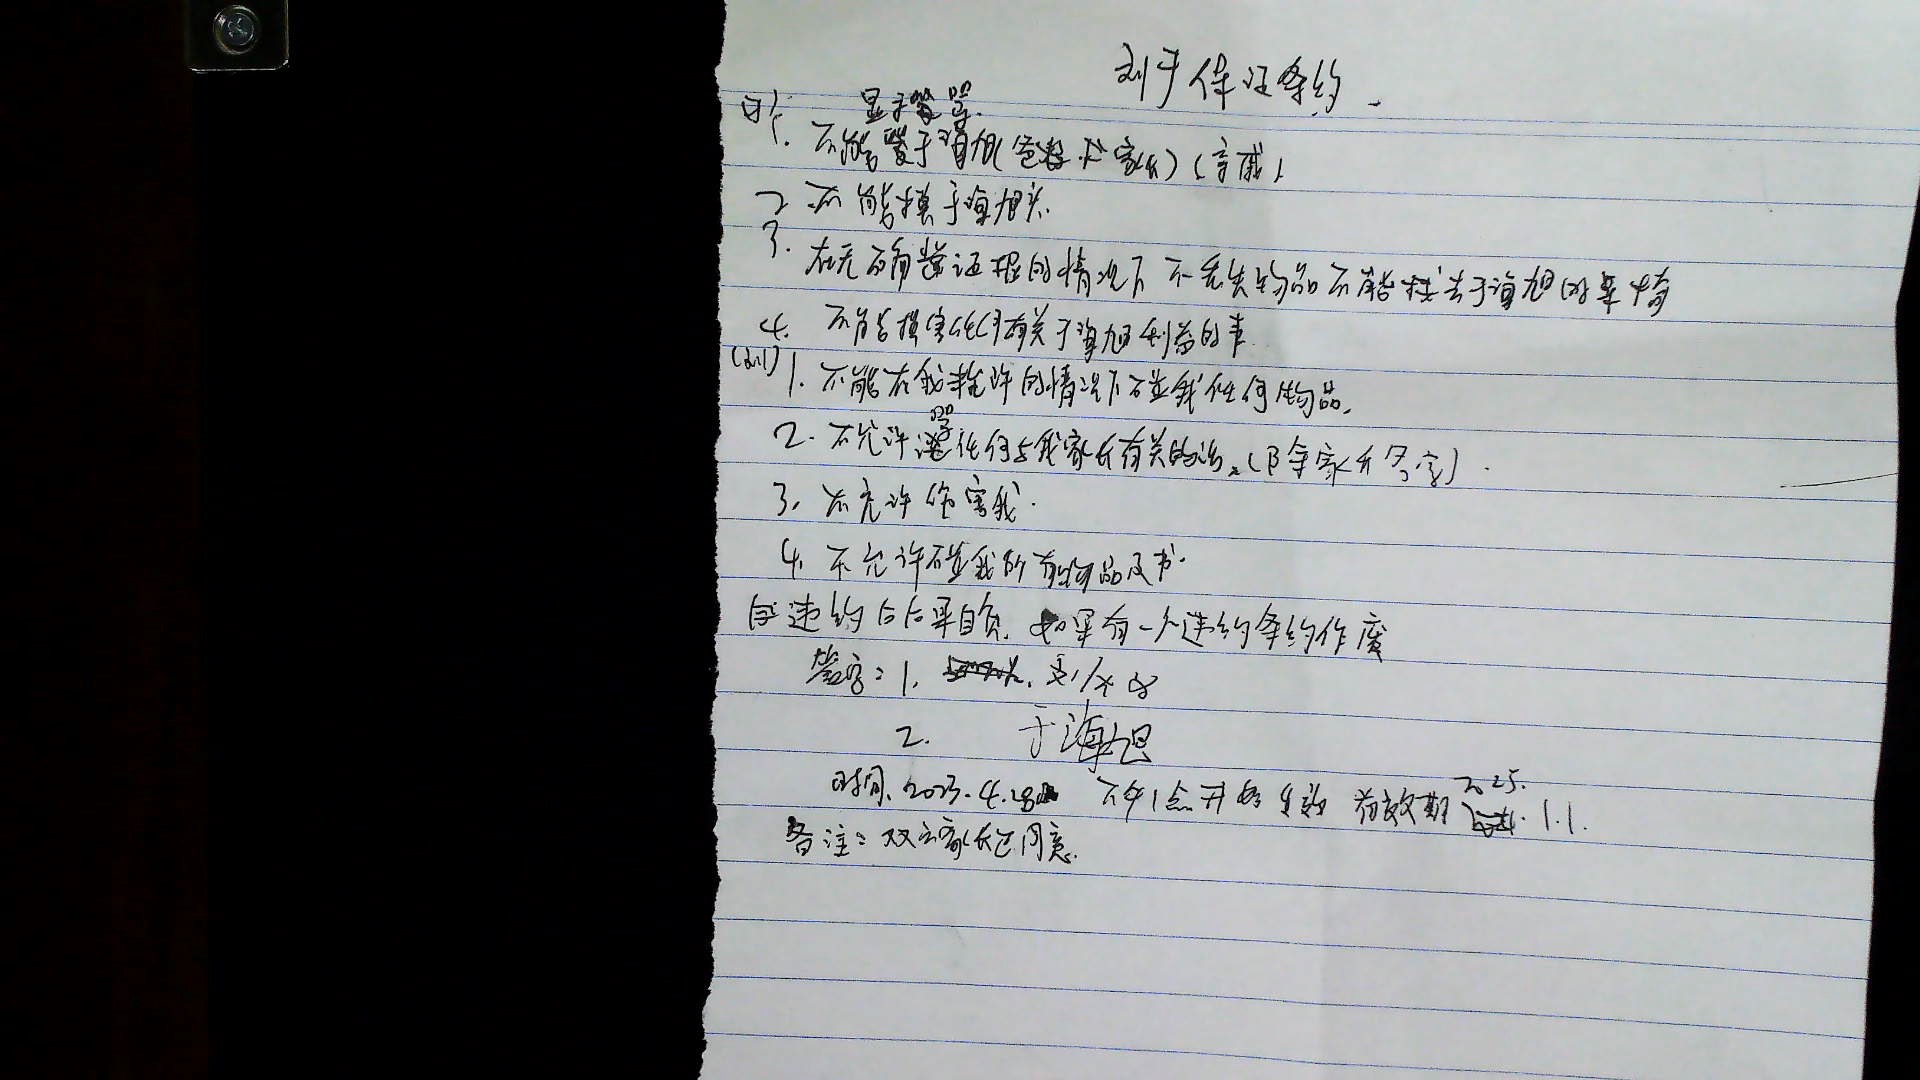 刘于保证条约.
1. 不能骂于海旭(爸妈家长)(亲戚)
2 不能摸于海旭头.
3. 在无确凿证据的情况下 不丢失物品不能找于海旭的事情
4. 不能损害任何有关于海旭利益的事.
(刘) 1. 不能在我允许的情况下碰我任何物品.
2. 不允许任何与我家长有关的话.(除家长名字).
3. 不允许伤害我.
4. 不允许碰我所有物品及书.
违约后后果自负. 如果有一人违约条约作废
签字: 1. 刘
2. 于海旭
时间. 2023.4.28 下午1点开始生效 有效期 2025. 1.1.
备注: 双方家长已同意.